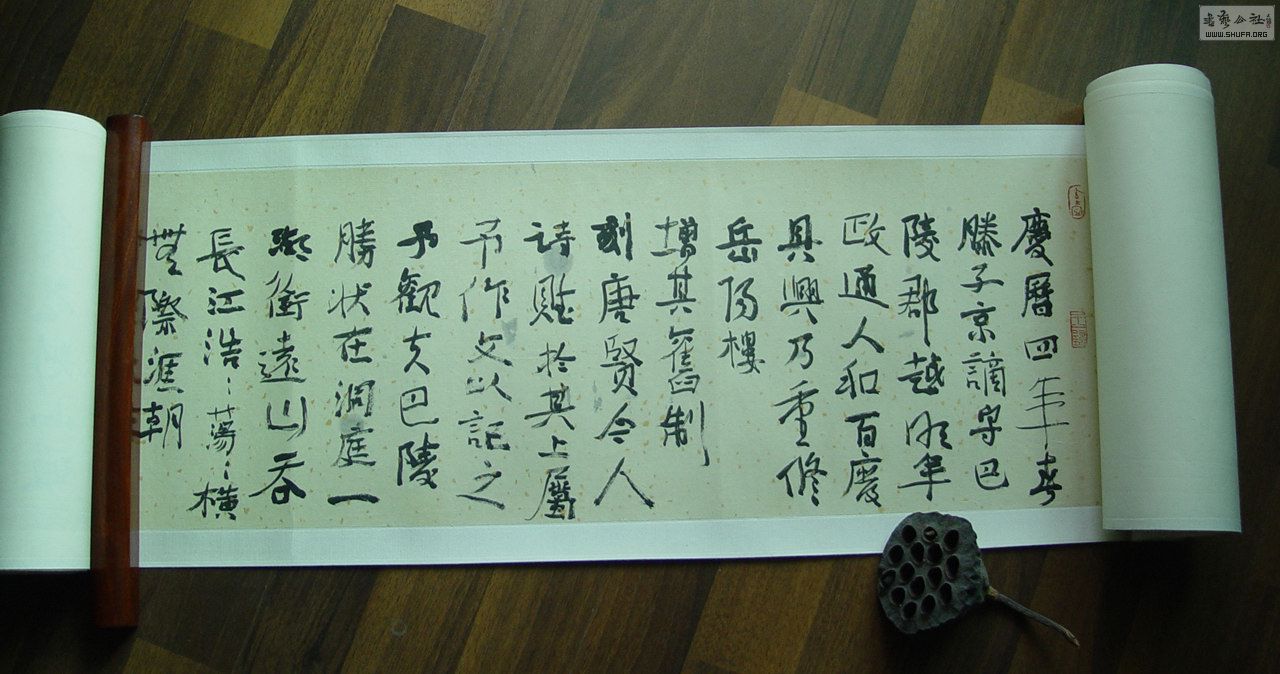 慶曆四年春
滕子京謫守巴
陵郡越明年
政通人和百廢
具興乃重修
岳陽樓
增其舊制
刻唐賢今人
詩賦於其上屬
予作文以記之
予觀夫巴陵
勝狀在洞庭一
湖銜遠山吞
長江浩〻蕩〻橫
無際涯朝
書藝公社
WWW.SHUFA.ORG